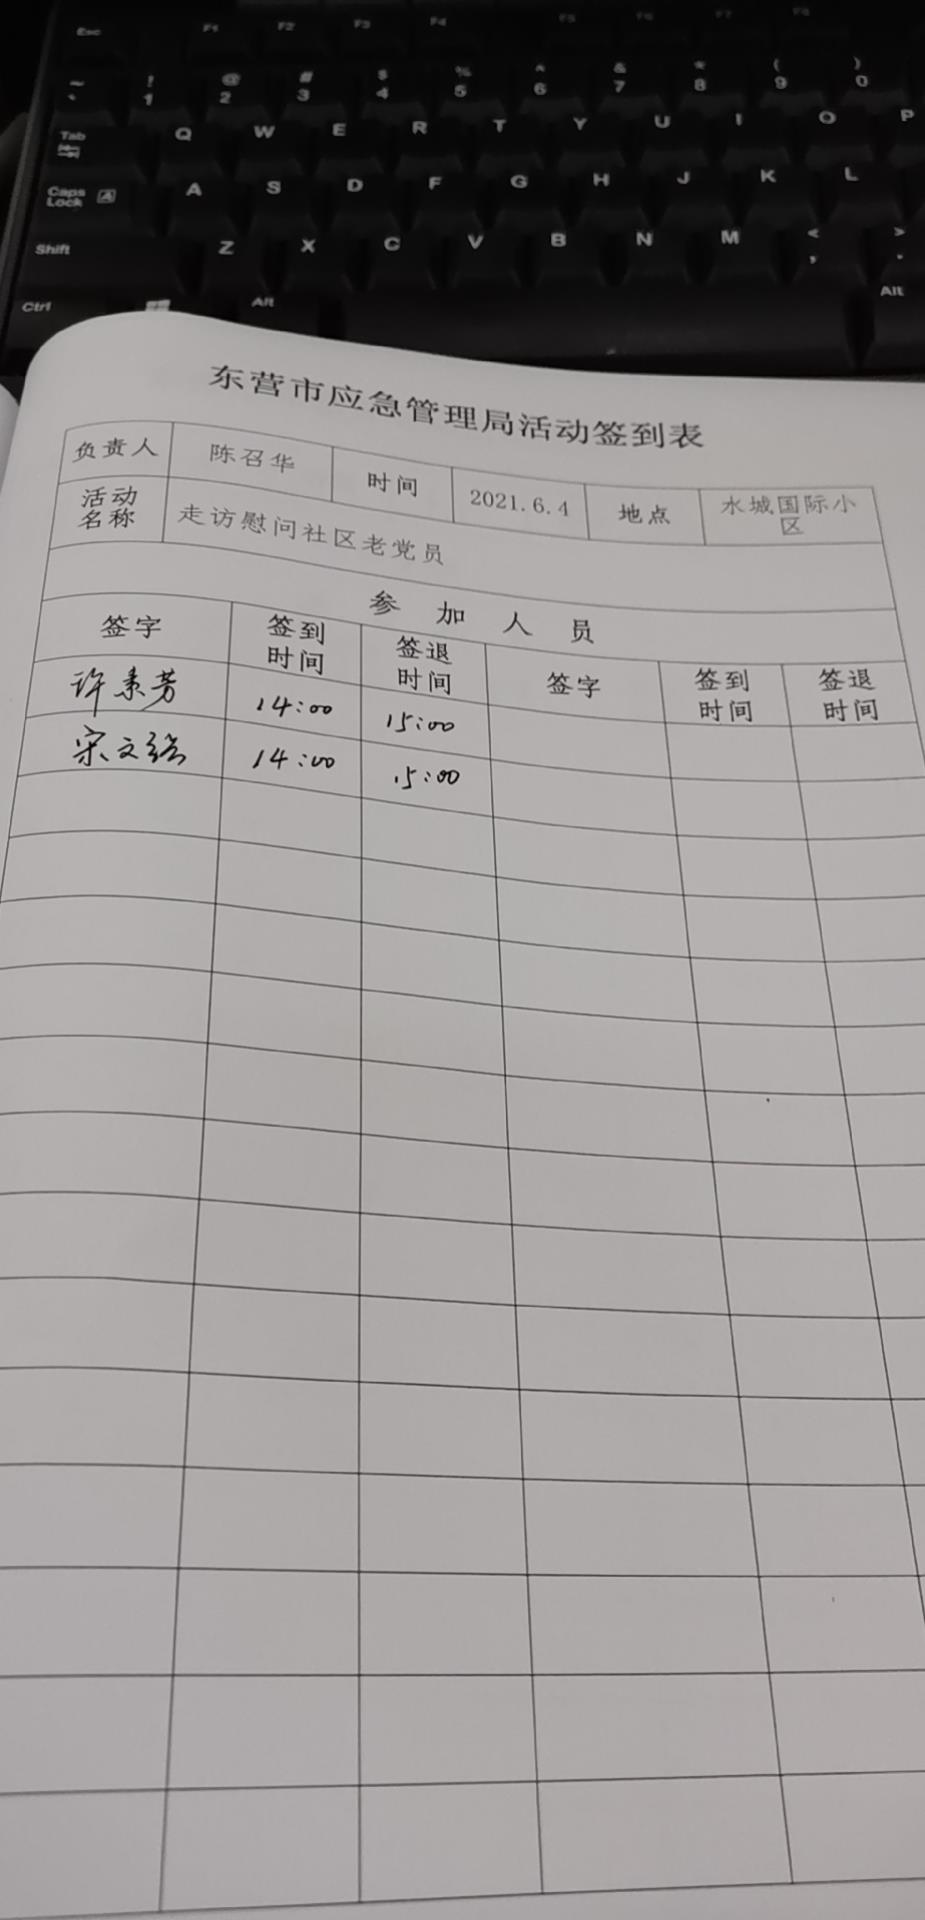 Esc F1 F2 F3 F4 F5 F6 F7 F8
~ ! @ # $ % ^ & * ( )
` 1 2 3 4 5 6 7 8 9 0
Tab Q W E R T Y U I O P
Caps Lock A A S D F G H J K L
Shift Z X C V B N M < >
, .
Ctrl Alt Alt
东营市应急管理局活动签到表
负责人 陈召华 时间 2021.6.4 地点 水城国际小区
活动名称 走访慰问社区老党员
参加人员
签字 签到时间 签退时间 签字 签到时间 签退时间
许素芳 14:00 15:00
宋文 14:00 15:00